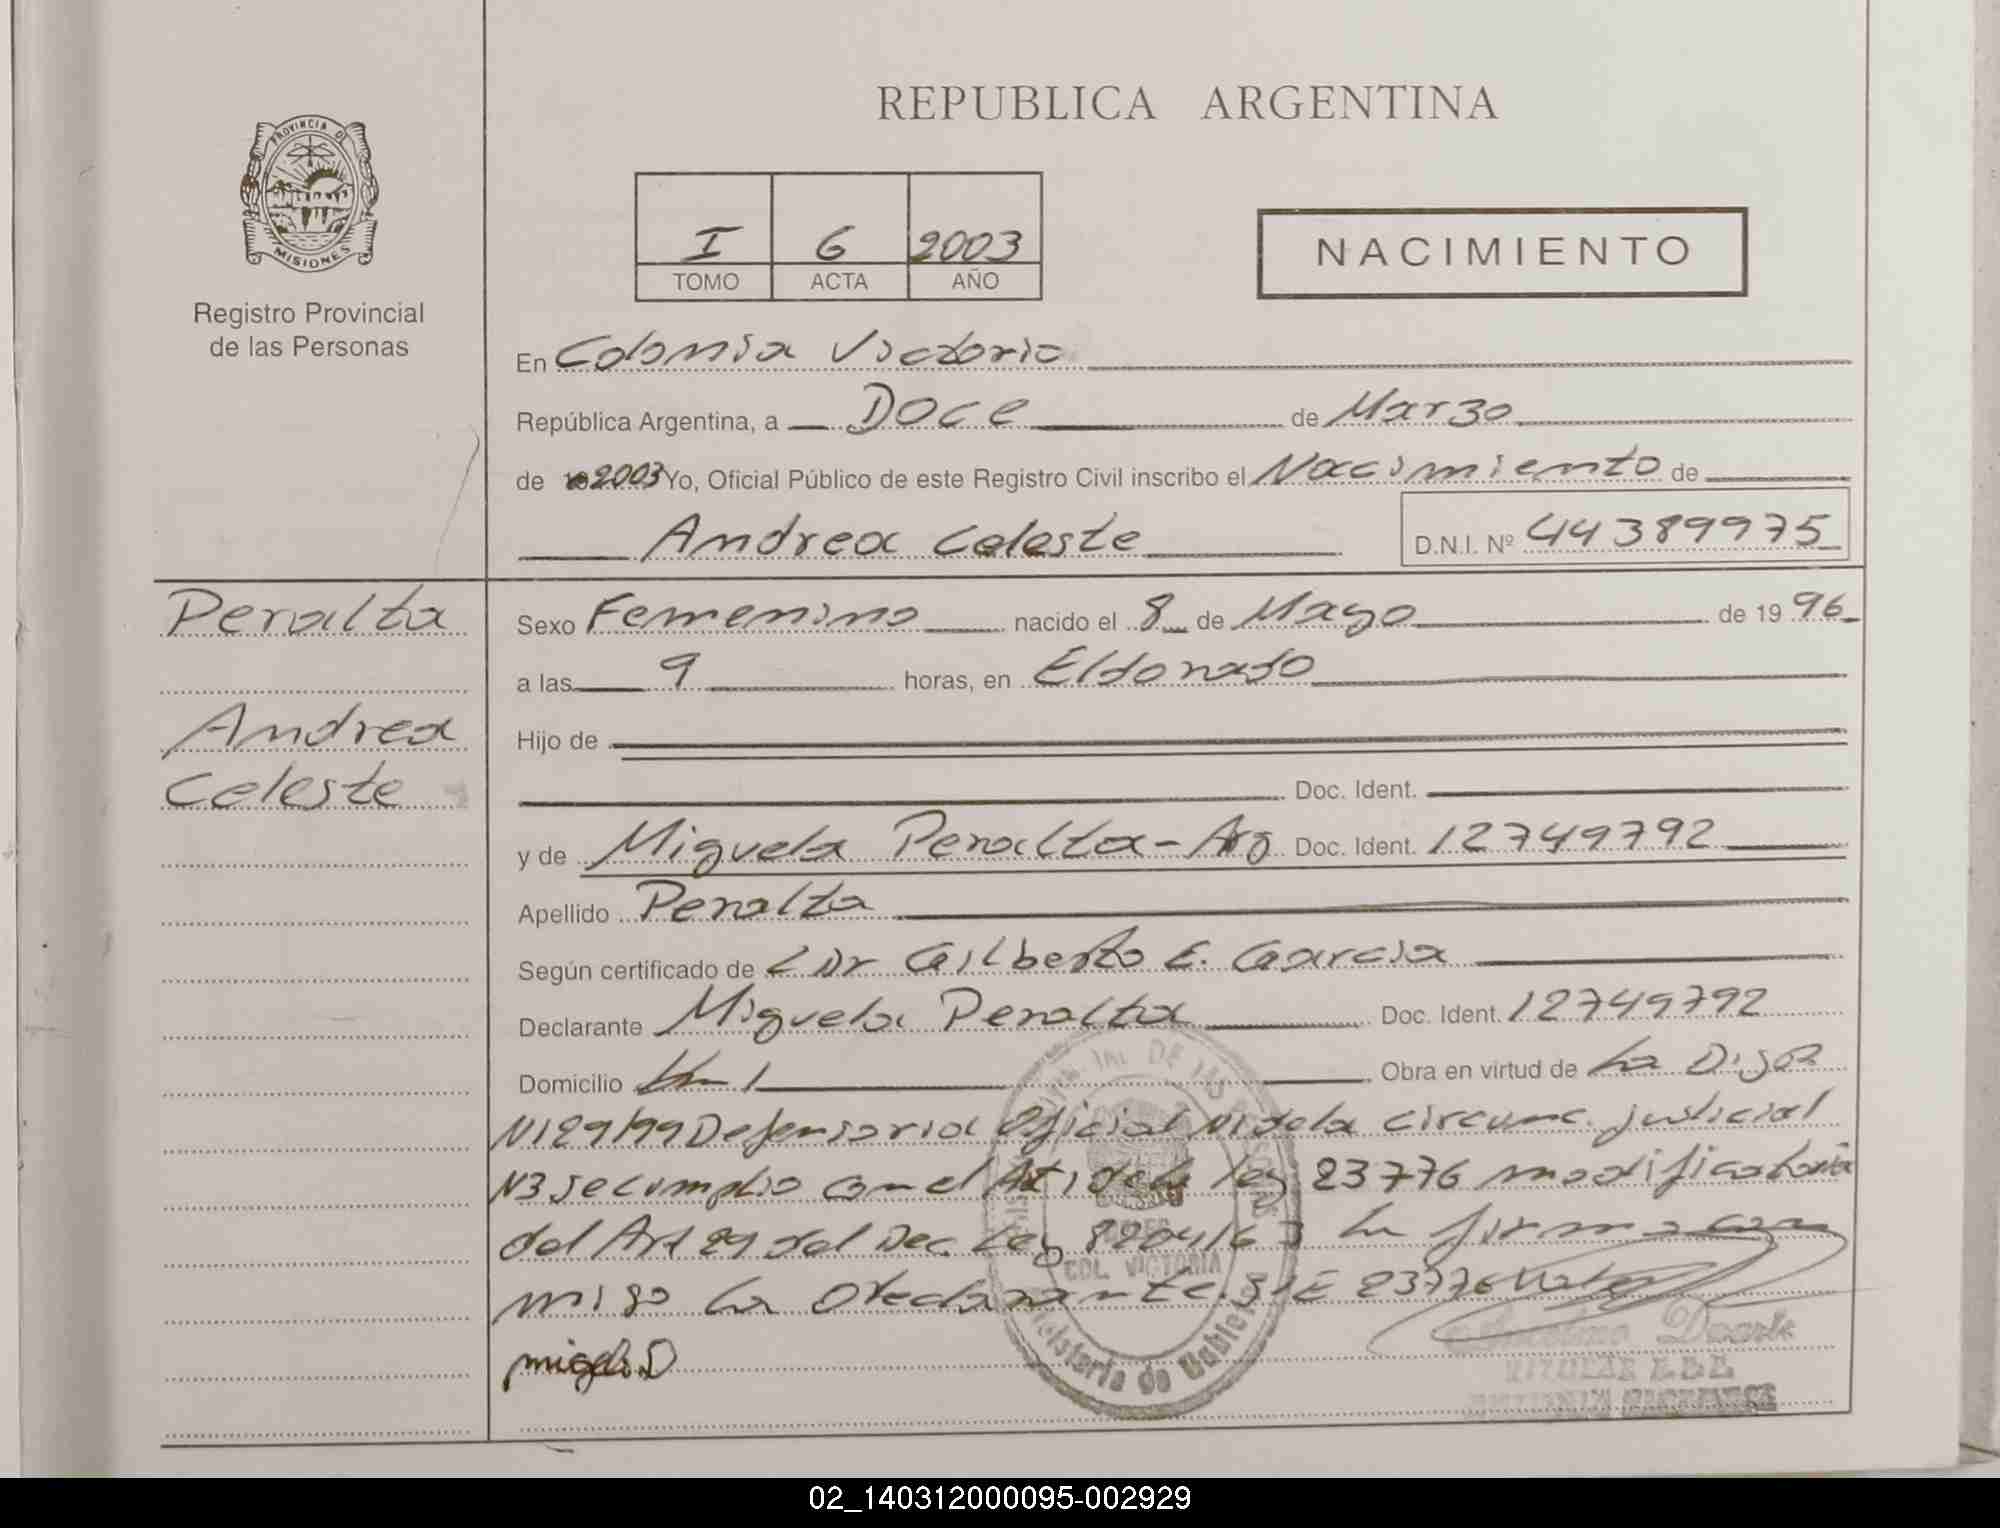 REPUBLICA ARGENTINA
PROVINCIA DE
MISIONES
Registro Provincial
de las Personas
I 6 2003
TOMO ACTA AÑO
NACIMIENTO
En Colonia Victoria
República Argentina, a Doce de Marzo
de 2003 Yo, Oficial Público de este Registro Civil inscribo el Nacimiento de
Andrea Celeste D.N.I. Nº 44389975
Peralta
Andrea
Celeste
Sexo Femenino nacido el 8 de Mayo de 1996
a las 9 horas, en Eldorado
Hijo de
Doc. Ident.
y de Miguela Peralta - Arg Doc. Ident. 12749792
Apellido Peralta
Según certificado de Dr Gilberto E. Garcia
Declarante Miguela Peralta Doc. Ident. 12749792
Domicilio Km 1 Obra en virtud de La Disp
N129/99 Defensoria Oficial N1 de la circunc. judicial
N3 se cumplio con el Art 1 de la ley 23776 modificatoria
del Art 29 del Dec. Ley 8204/63 La firma con
migo La declarante. S/E 23776 Vale
COL. VICTORIA
Ministerio de Gobierno
Duarte
02_140312000095-002929